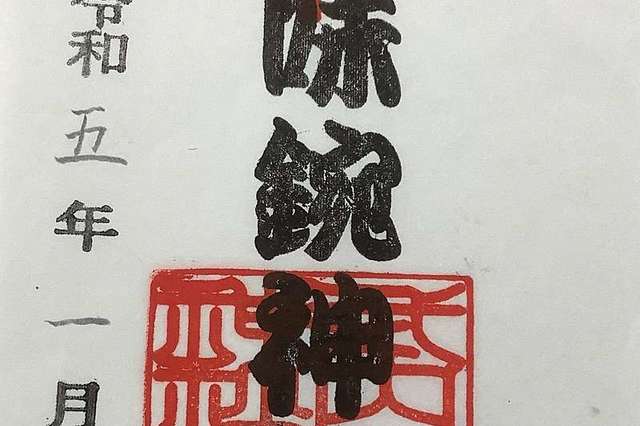 味鋺神
令和五年一月